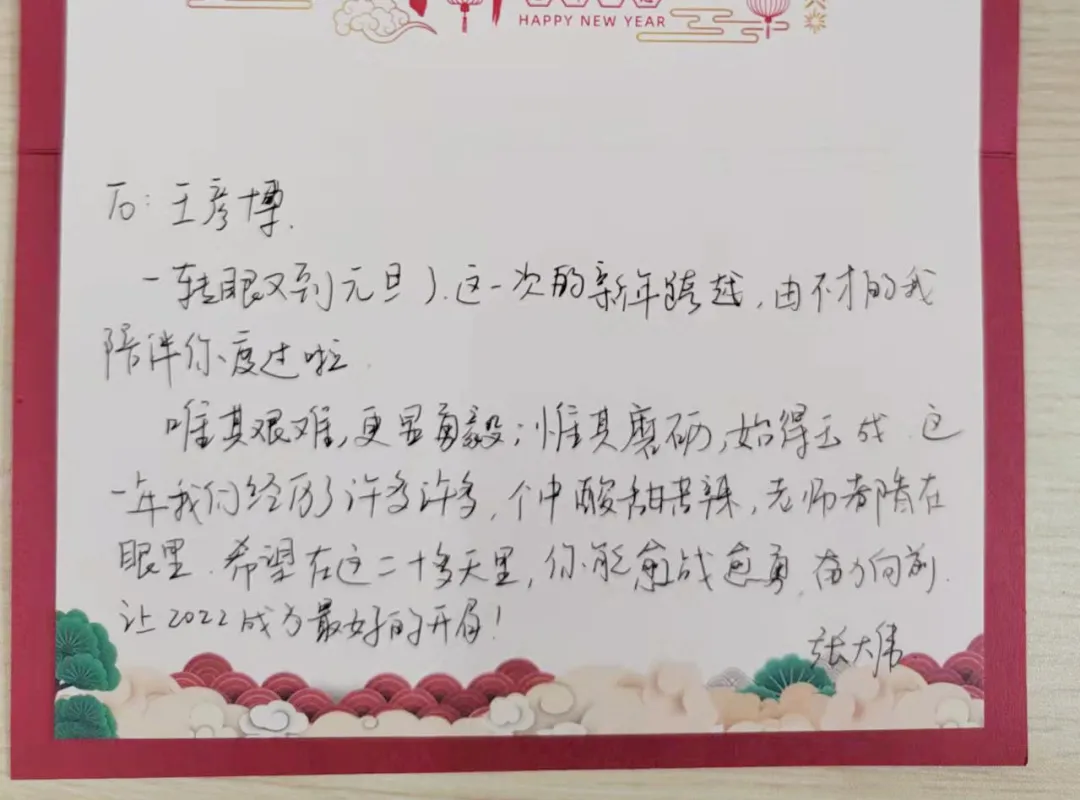 HAPPY NEW YEAR
To：王彦博.
一转眼又到元旦了.这一次的新年跨越，由不才的我
陪伴你度过啦.
唯其艰难，更显勇毅；惟其磨砺，始得玉成.这
一年我们经历了许多许多，个中酸甜苦辣，老师都看在
眼里.希望在这二十多天里，你能愈战愈勇，奋力向前.
让2022成为最好的开局！
张大伟